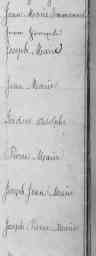 Jean Marie Emmanuel
Jean Joseph
Joseph Marie
Jean Marie
Isidore Adolphe
Pierre Marie
Joseph Jean Marie
Joseph Pierre Marie